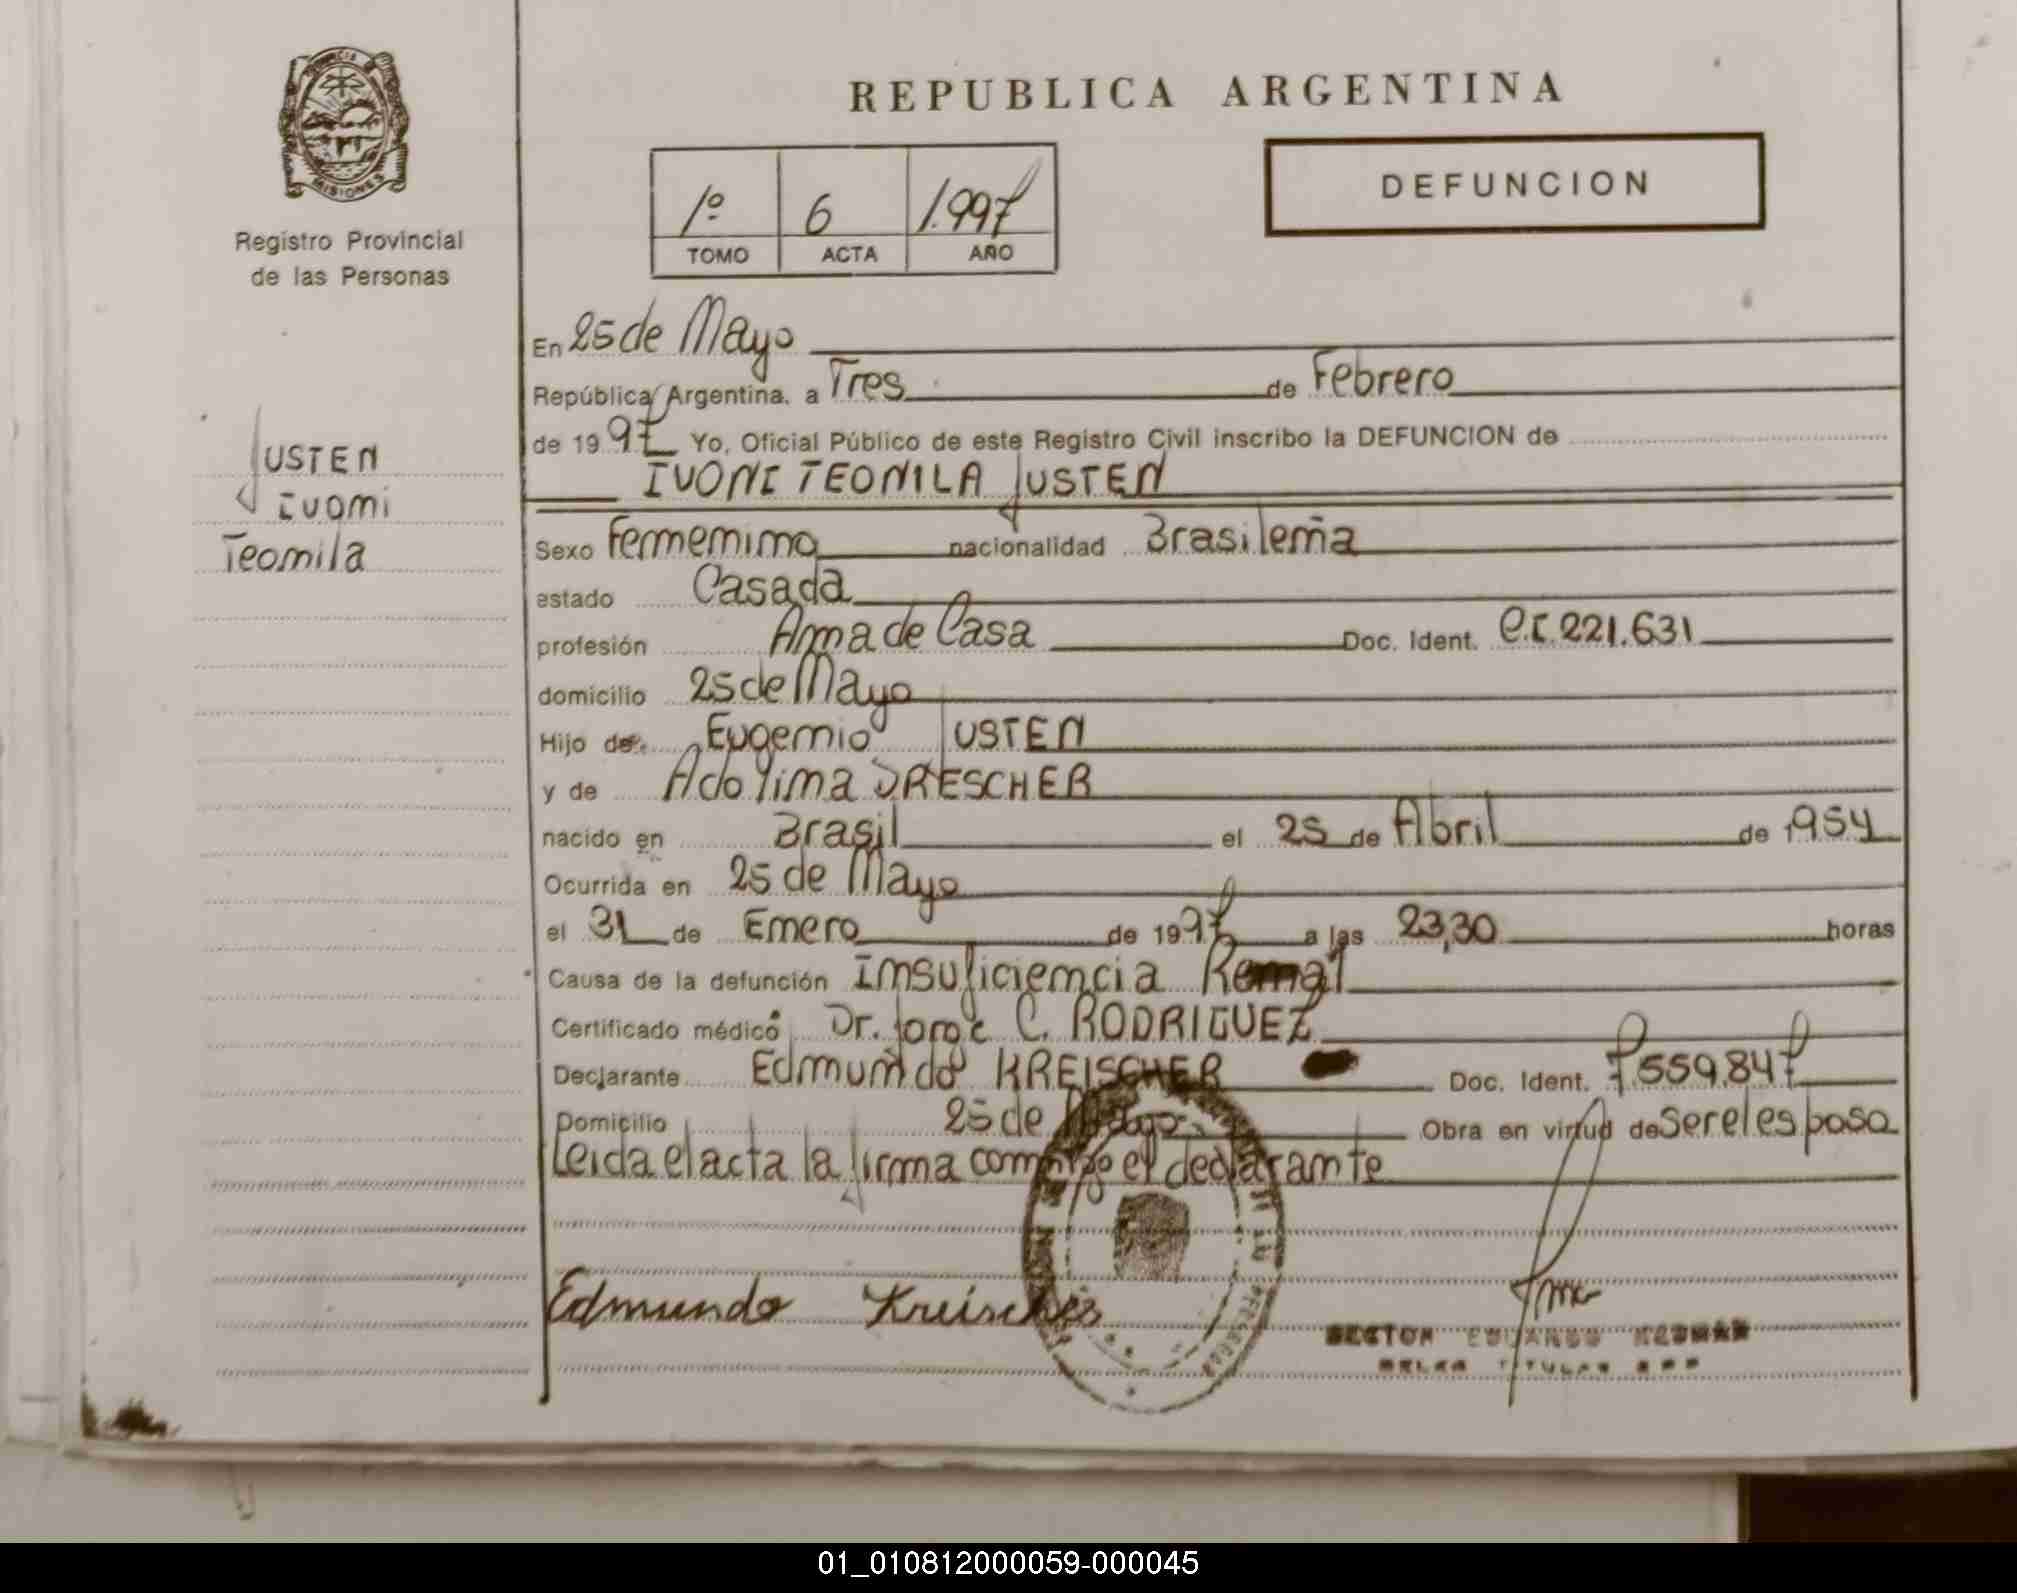 PROVINCIA
MISIONES
Registro Provincial
de las Personas
JUSTEN
Ivoni
Teonila
REPUBLICA ARGENTINA
1º 6 1.997
TOMO ACTA AÑO
DEFUNCION
En 25 de Mayo
República Argentina, a Tres de Febrero
de 1997 Yo, Oficial Público de este Registro Civil inscribo la DEFUNCION de
IVONI TEONILA JUSTEN
Sexo Femenino nacionalidad Brasileña
estado Casada
profesión Ama de Casa Doc. Ident. C.I. 221.631
domicilio 25 de Mayo
Hijo de Eugenio JUSTEN
y de Adolina DRESCHER
nacido en Brasil el 25 de Abril de 1954
Ocurrida en 25 de Mayo
el 31 de Enero de 1997 a las 23,30 horas
Causa de la defunción Insuficiencia Renal
Certificado médico Dr. Jorge C. RODRIGUEZ
Declarante Edmundo KREISCHER Doc. Ident. 7.559.847
Domicilio 25 de Mayo Obra en virtud de ser el esposo
Leida el acta la firma conmigo el declarante
Edmundo Kreischer
EDUARDO
TITULAR
01_010812000059-000045